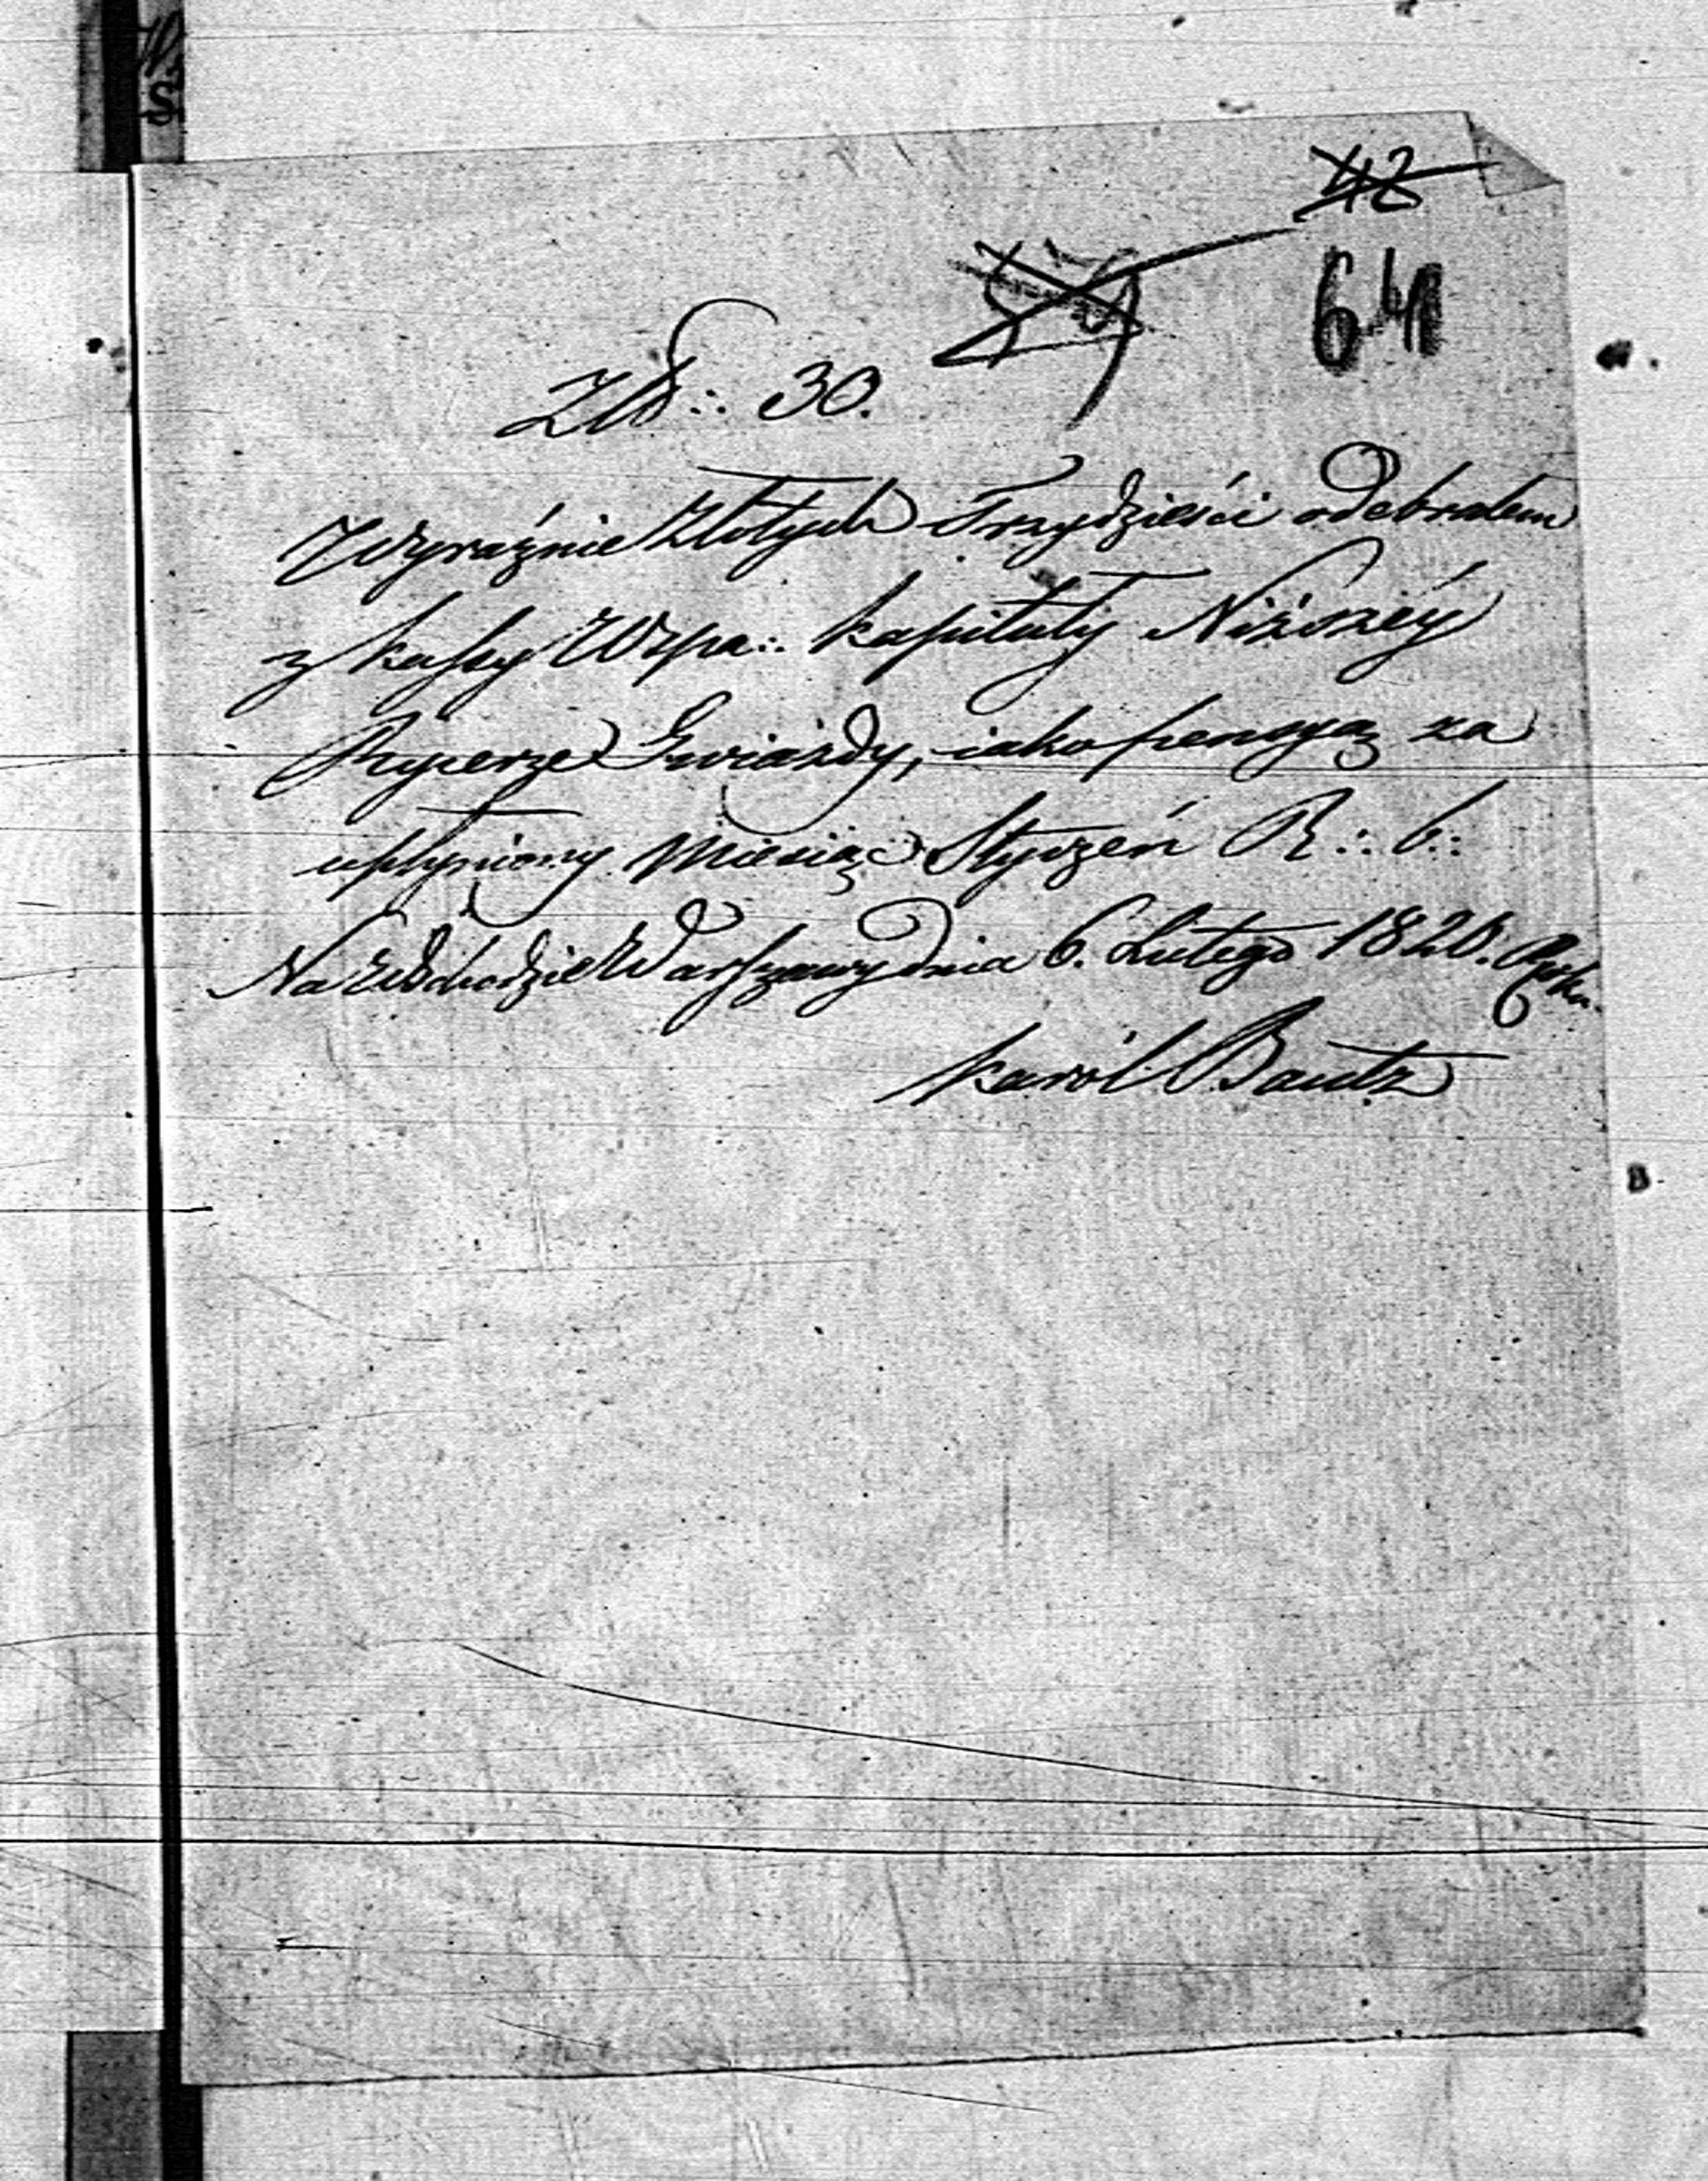 42
64
Złł:. 30.
Wyraźnie Złotych Trzydzieści odebrałem
z kassy Wzpa:. kapituły Niższey
Rycerze Gwiazdy, iako pensyą za
upłyniony Miesiąc Styczeń R:. b:.
Na Wschodzie Warszawy dnia 6. Lutego 1820. Roku.
Karól Bautz